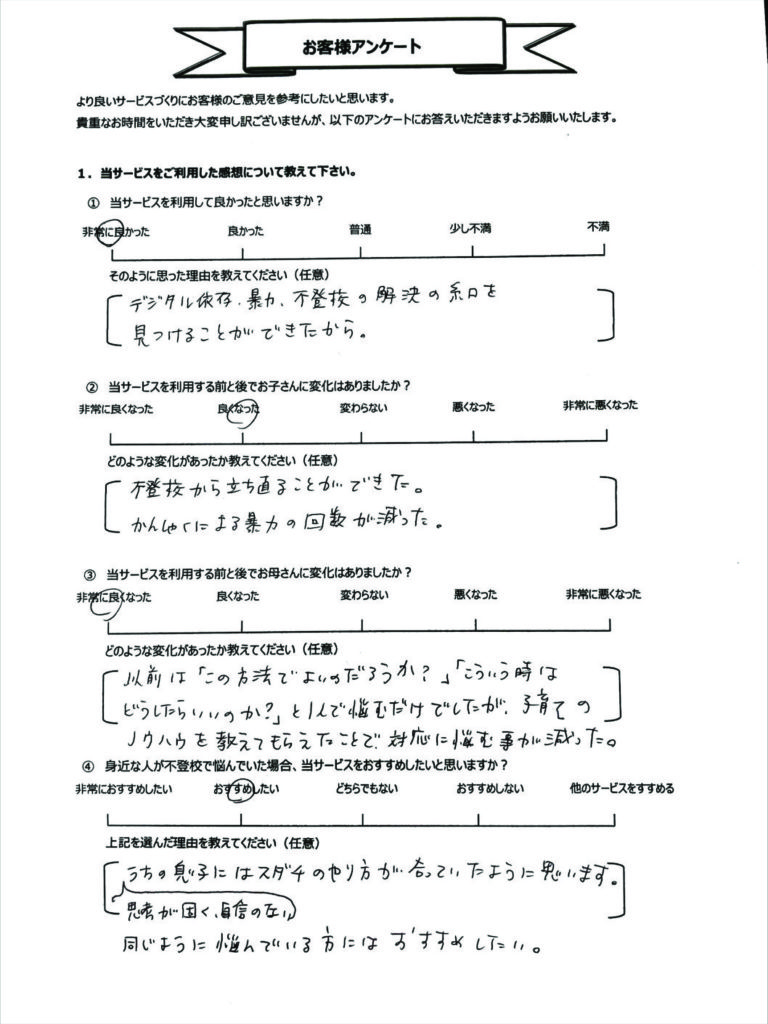 お客様アンケート
より良いサービスづくりにお客様のご意見を参考にしたいと思います。
貴重なお時間をいただき大変申し訳ございませんが、以下のアンケートにお答えいただきますようお願いいたします。
1．当サービスをご利用した感想について教えて下さい。
① 当サービスを利用して良かったと思いますか？
非常に良かった 良かった 普通 少し不満 不満
そのように思った理由を教えてください（任意）
デジタル依存、暴力、不登校の解決の糸口を
見つけることができたから。
② 当サービスを利用する前と後でお子さんに変化はありましたか？
非常に良くなった 良くなった 変わらない 悪くなった 非常に悪くなった
どのような変化があったか教えてください（任意）
不登校から立ち直ることができた。
かんしゃくによる暴力の回数が減った。
③ 当サービスを利用する前と後でお母さんに変化はありましたか？
非常に良くなった 良くなった 変わらない 悪くなった 非常に悪くなった
どのような変化があったか教えてください（任意）
以前は「この方法でよいのだろうか？」「こういう時は
どうしたらいいのか？」と1人で悩むだけでしたが、子育ての
ノウハウを教えてもらえたことで、対応に悩む事が減った。
④ 身近な人が不登校で悩んでいた場合、当サービスをおすすめしたいと思いますか？
非常におすすめしたい おすすめしたい どちらでもない おすすめしない 他のサービスをすすめる
上記を選んだ理由を教えてください（任意）
うちの息子にはスダチのやり方が合っていたように思います。
思考が固く、自信のない
同じように悩んでいる方にはおすすめしたい。